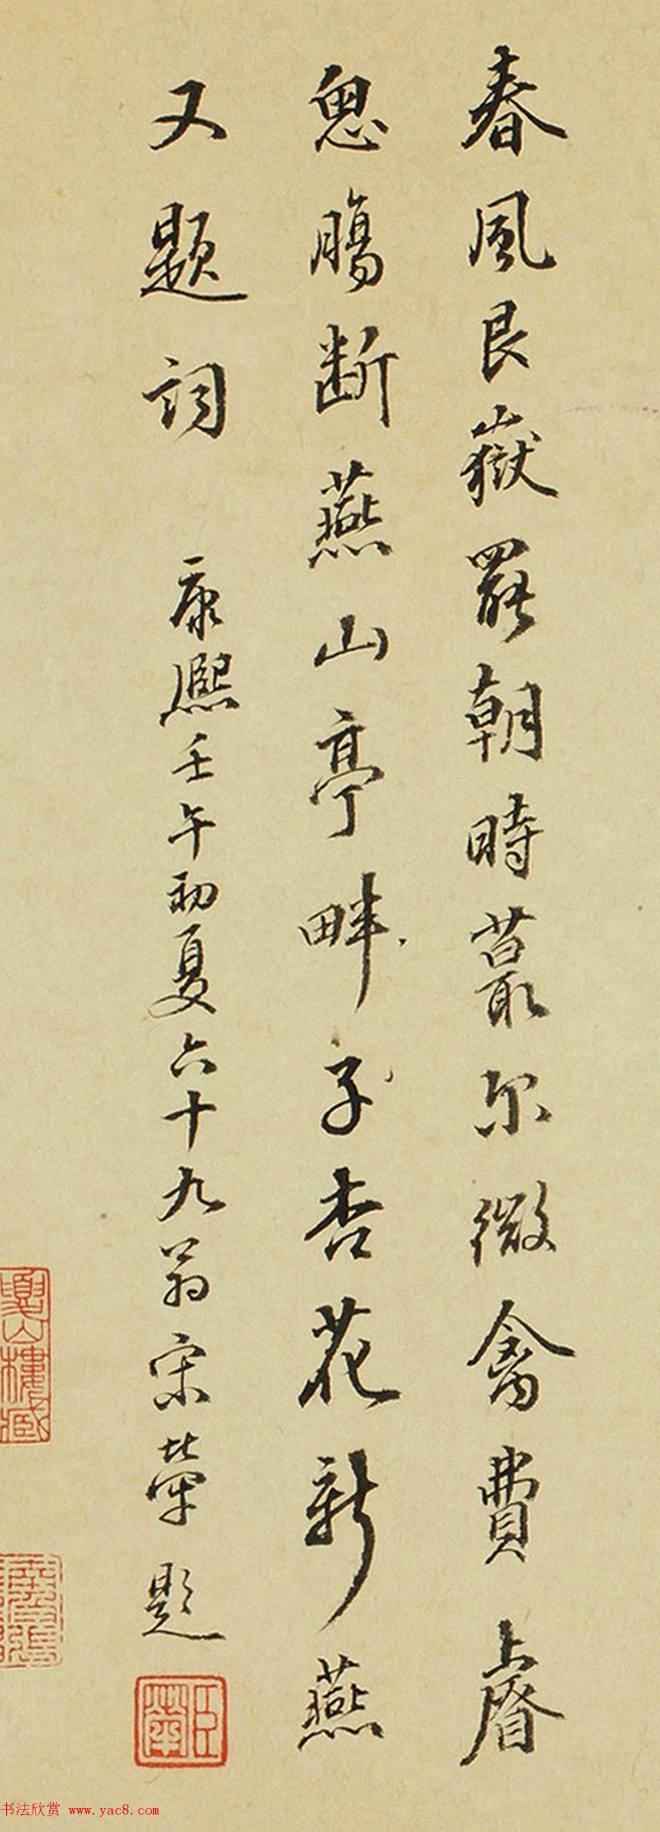 春風艮嶽罷朝時蕞尔微禽費睿
思腸断燕山亭畔子杏花新燕
又題詞 康熙壬午初夏六十九翁宋犖題
臣犖
书法欣赏 www.yac8.com